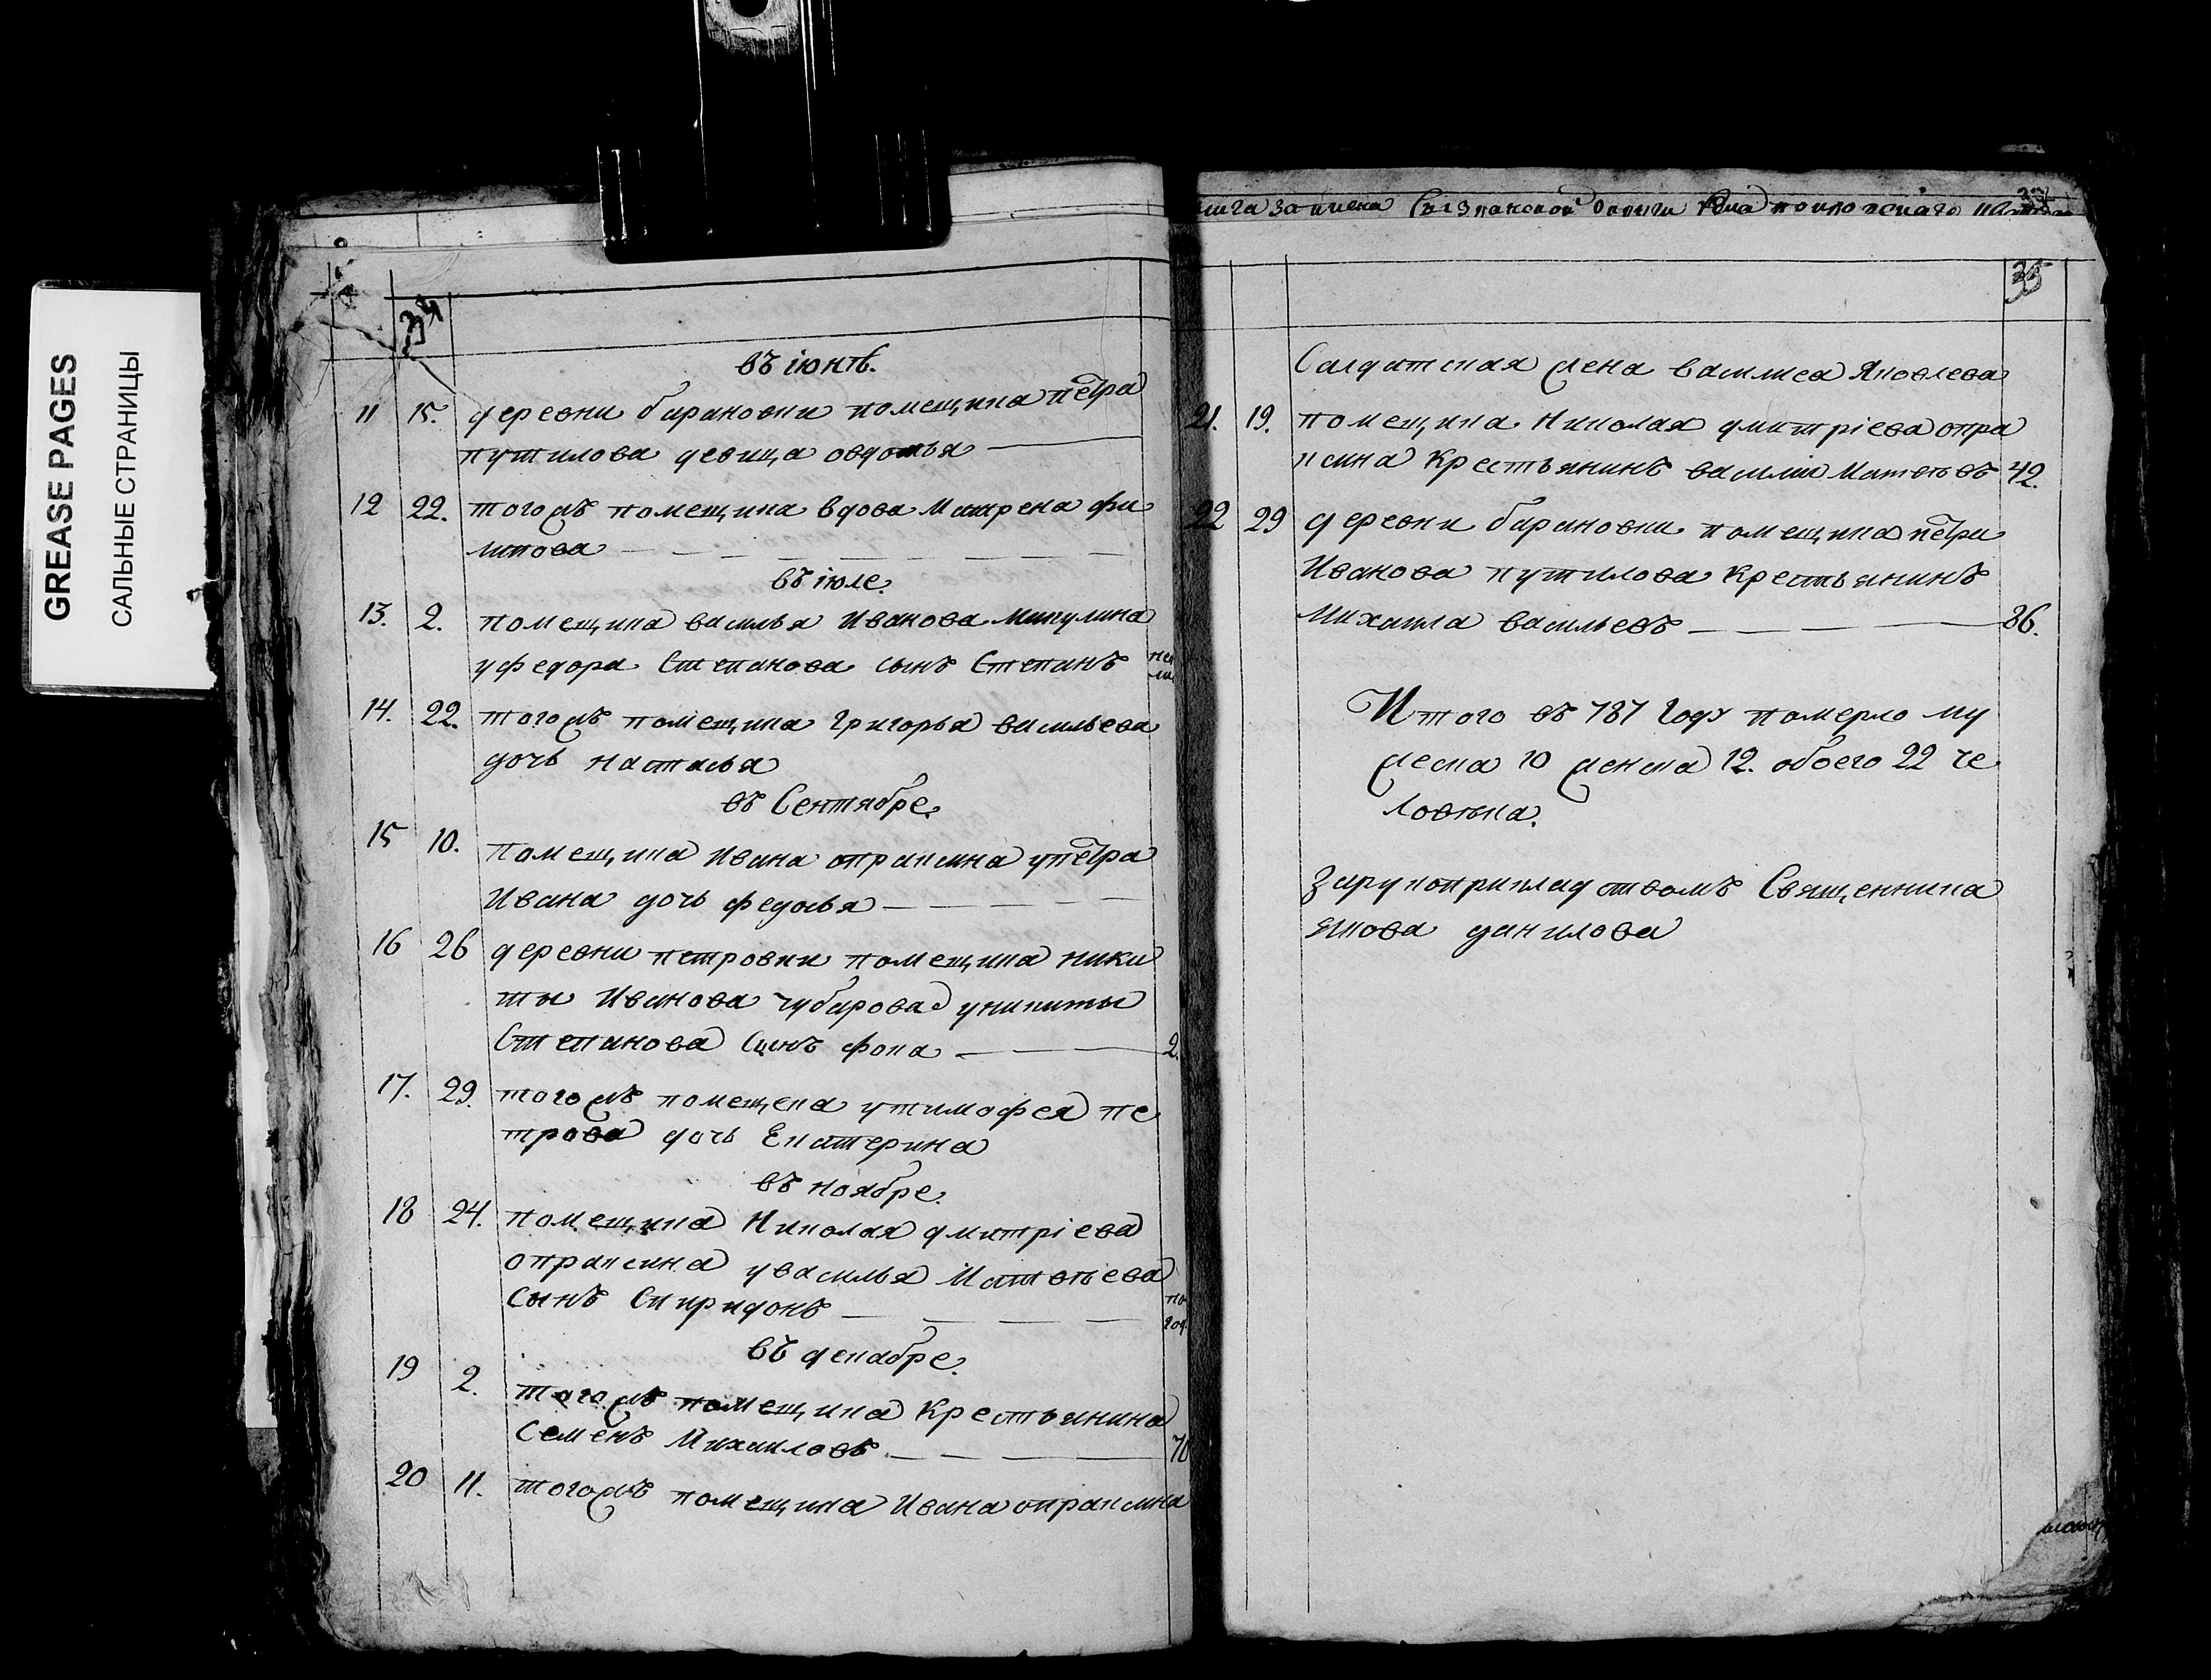 GREASE PAGES
САЛЬНЫЕ СТРАНИЦЫ
34
въ іюнѣ.
11 15. деревни барановки помещика петра
путилова девица овдотья
12 22. тогожъ помещика вдова Матрена фи
липова
въ іюле.
13. 2. помещика василья Иванова Микулина
уфедора Степанова сынъ Степанъ
14. 22. тогожъ помещика Григорья васильева
дочь настасья
въ Сентябре.
15 10. помещика Ивана опраксина упетра
Ивана дочь федосья
16 26 деревни петровки помещика ники
ты Иванова чубарова уникиты
Степанова Сынъ фока 2.
17. 29. тогожъ помещека утимофея пе
трова дочь Екатерина
въ ноябре.
18 24. помещика Николая дмитріева
опраксина увасилья Матвѣева
сынъ Спиридонъ
въ декабре.
19 2. тогожъ помещика Крестьянина
Семенъ Михаиловъ 70
20 11. тогожъ помещика Ивана опраксина
Сызранской округи
35
Салдатская жена василиса Яковлева
21. 19. помещика Николая дмитріева опра
ксина Крестьянинъ василий Матвѣевъ 42.
22 29 деревни барановки помещика петра
Иванова путилова Крестьянинъ
Михаила васильевъ 86.
Итого въ 787 Году померло му
жеска 10 женска 12. обоего 22 че
ловѣка.
Зарукоприкладствомъ Священника
якова данилова